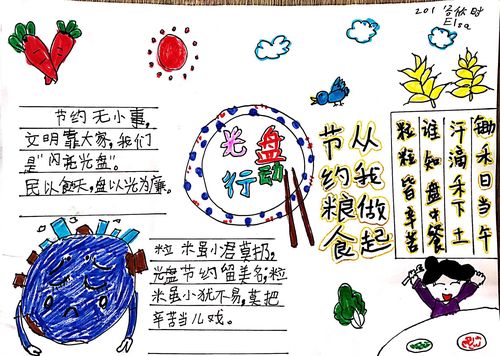 201
Elsa
节约无小事,
文明靠大家,我们
是"闪亮光盘"。
民以食天,盘以光为廉。
光盘
行动
从我做起
节约粮食
锄禾日当午
汗滴禾下土
谁知盘中餐
粒粒皆辛苦
粒米虽小君莫扔,
光盘节约留美名;粒
米虽小犹不易,莫把
辛苦当儿戏。